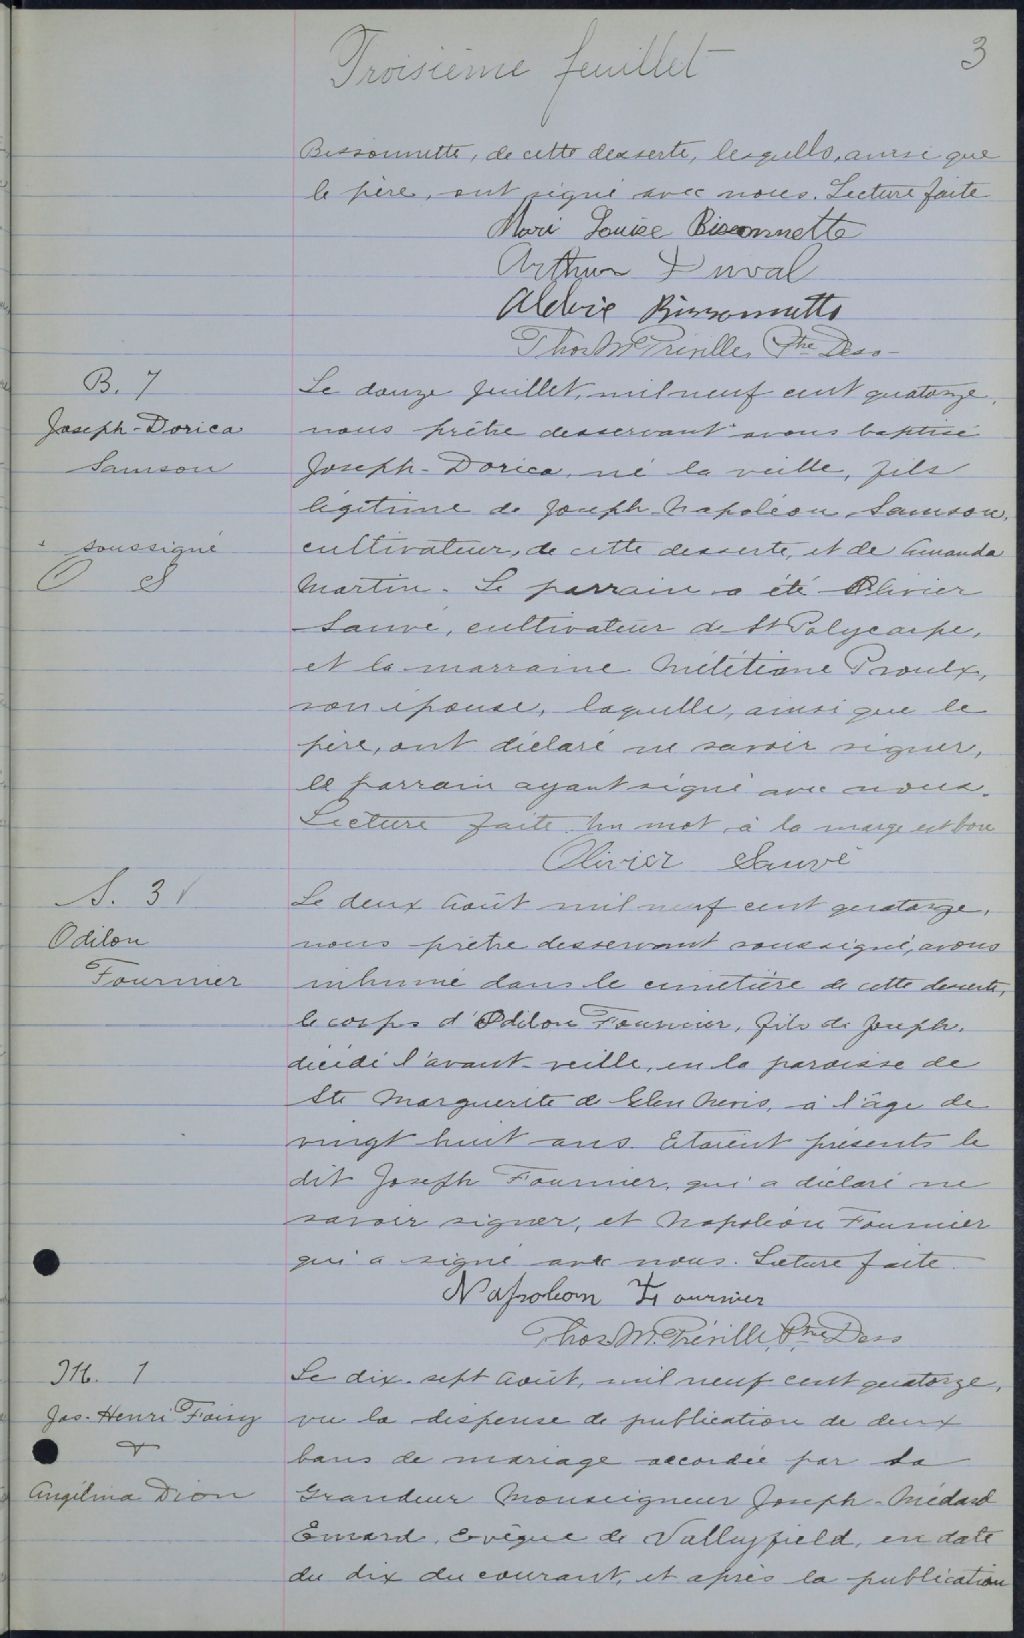 Troisième feuillet
3
Bissonnette, de cette desserte, lesquells, ainsi que
le père, ont signé avec nous. Lecture faite
Mari Louise Bissonnette
Arthur Duval
Bissonnette
Thos M. Préville, Ptre Dess
B. 7
Joseph-Dorica
Samson
* soussigné
O S
Le douze Juillet, mil neuf cent quatorze,
nous prêtre desservant * avons baptisé
Joseph-Dorica, né la veille, fils
légitime de Joseph-Napoléon Samson,
cultivateur, de cette desserte, et de Amanda
Martin. Le parrain a été Olivier
Sauvé, cultivateur de St Polycarpe,
et la marraine Proulx,
son épouse, laquelle, ainsi que le
père, ont déclaré ne savoir signer,
le parrain ayant signé avec nous.
Lecture faite. Un mot à la marge est bon
Olivier Sauvé
S. 3
Odilon
Fournier
Le deux Août mil neuf cent quatorze,
nous prêtre desservant soussigné, avons
inhumé dans le cimetière de cette desserte,
le corps d'Odilon Fournier, fils de Joseph,
décédé l'avant-veille, en la paroisse de
Ste Marguerite de Glen Nevis, à l'âge de
vingt huit ans. Etaient présents le
dit Joseph Fournier, qui a déclaré ne
savoir signer, et Napoléon Fournier
qui a signé avec nous. Lecture faite.
Napoleon Fournier
Thos. M. Préville, Ptre Dess
M. 1
Jos-Henri Foisy
&
Angélina Dion
Le dix-sept Août, mil neuf cent quatorze,
vu la dispense de publication de deux
bans de mariage accordée par Sa
Grandeur Monseigneur Joseph-Médard
Emard, Evêque de Valleyfield, en date
du dix du courant, et après la publication